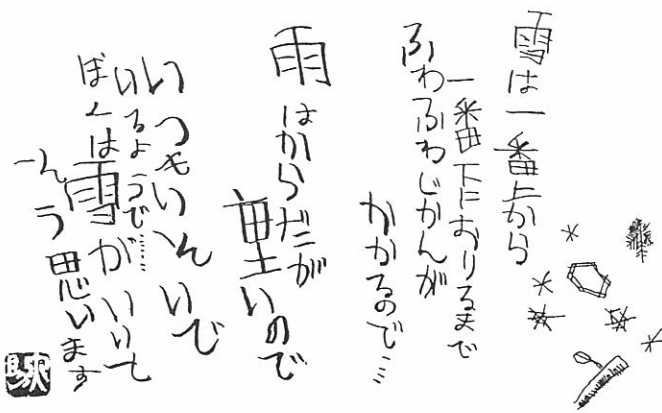 雪は一番上から
一番下におりるまで
ふわふわじかんが
かかるので…
雨はからだが
重いので
いつもいそいで
いるようで……
ぼくは雪がいいて
そう思います